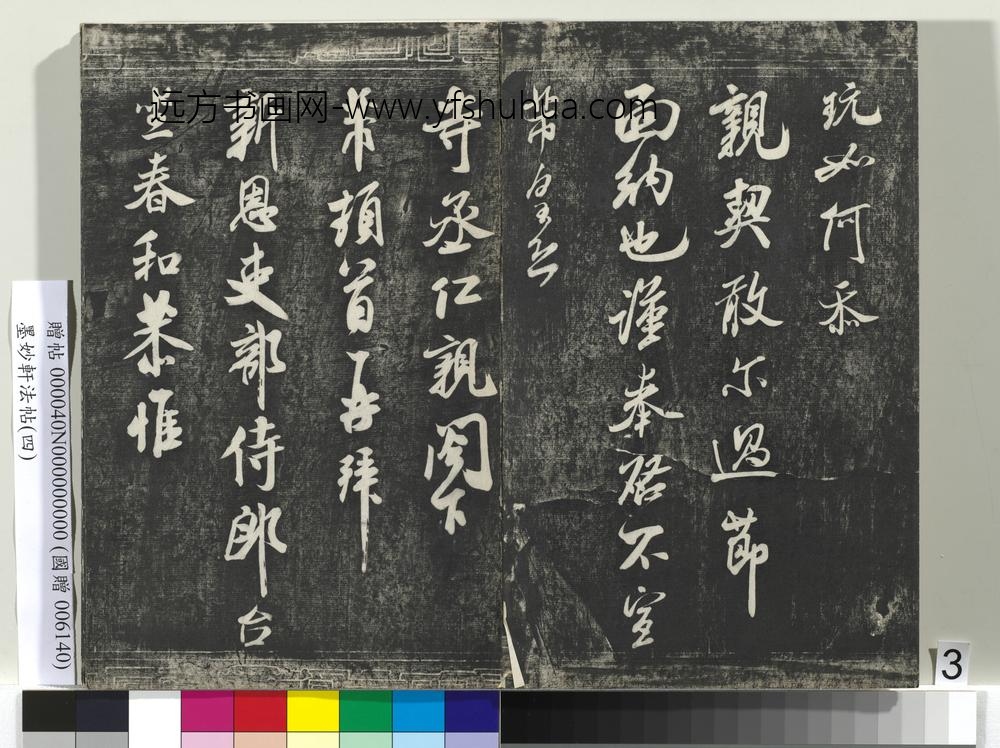 玩如何忝
親契敢尔過節
面納也謹奉啓不宣
芾
寺丞仁親閣下
芾頓首再拜
新恩吏部侍郎台
坐春和恭惟
远方书画网-www.yfshuhua.com
贈帖 000040N000000000 (國贈 006140)
墨妙軒法帖(四)
3